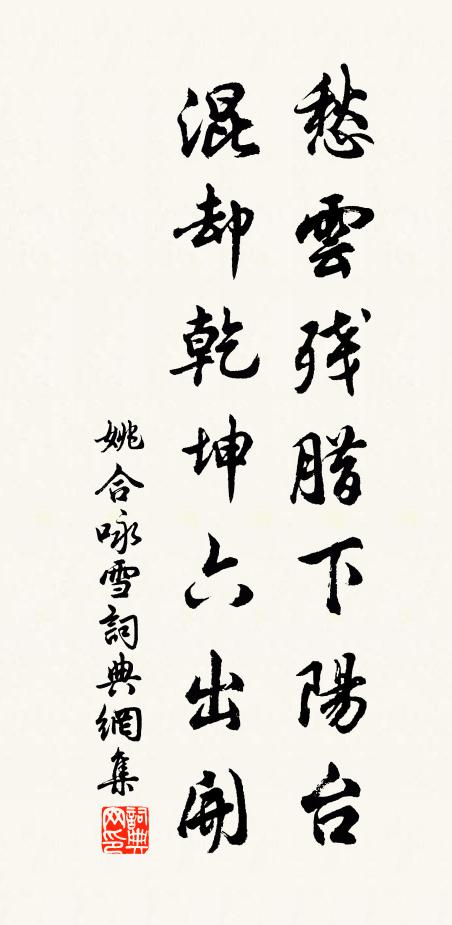 愁雲残腊下陽台
混却乾坤六出開
姚合咏雪詞典網集
詞典網印